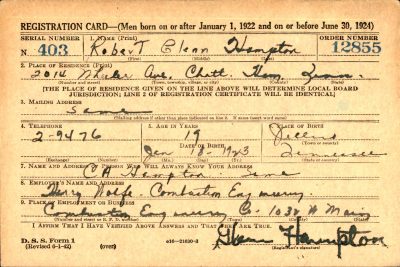 REGISTRATION CARD—(Men born on or after January 1, 1922 and on or before June 30, 1924)
SERIAL NUMBER 1. NAME (Print) ORDER NUMBER
N 403 Robert Glenn Hampton 12855
(First) (Middle) (Last)
2. PLACE OF RESIDENCE (Print)
2014 Wheeler Ave, Chatt. Ham. Tenn.
(Number and street) (Town, township, village, or city) (County) (State)
[THE PLACE OF RESIDENCE GIVEN ON THE LINE ABOVE WILL DETERMINE LOCAL BOARD
JURISDICTION; LINE 2 OF REGISTRATION CERTIFICATE WILL BE IDENTICAL]
3. MAILING ADDRESS
Same
[Mailing address if other than place indicated on line 2. If same insert word same]
4. TELEPHONE 5. AGE IN YEARS 6. PLACE OF BIRTH
2-9476 19
DATE OF BIRTH (Town or county)
Jan 18- 1923 Tennessee
(Exchange) (Number) (Mo.) (Day) (Yr.) (State or country)
7. NAME AND ADDRESS OF PERSON WHO WILL ALWAYS KNOW YOUR ADDRESS
C A Hampton Same
8. EMPLOYER'S NAME AND ADDRESS
Wolfe - Combustion Engineering
9. PLACE OF EMPLOYMENT OR BUSINESS
Combustion Engineering Co- 1032 W Main
(Number and street or R. F. D. number) (Town) (County) (State)
I AFFIRM THAT I HAVE VERIFIED ABOVE ANSWERS AND THAT THEY ARE TRUE.
D. S. S. Form 1 Glenn Hampton
(over) 16—21630-2 (Registrant's signature)